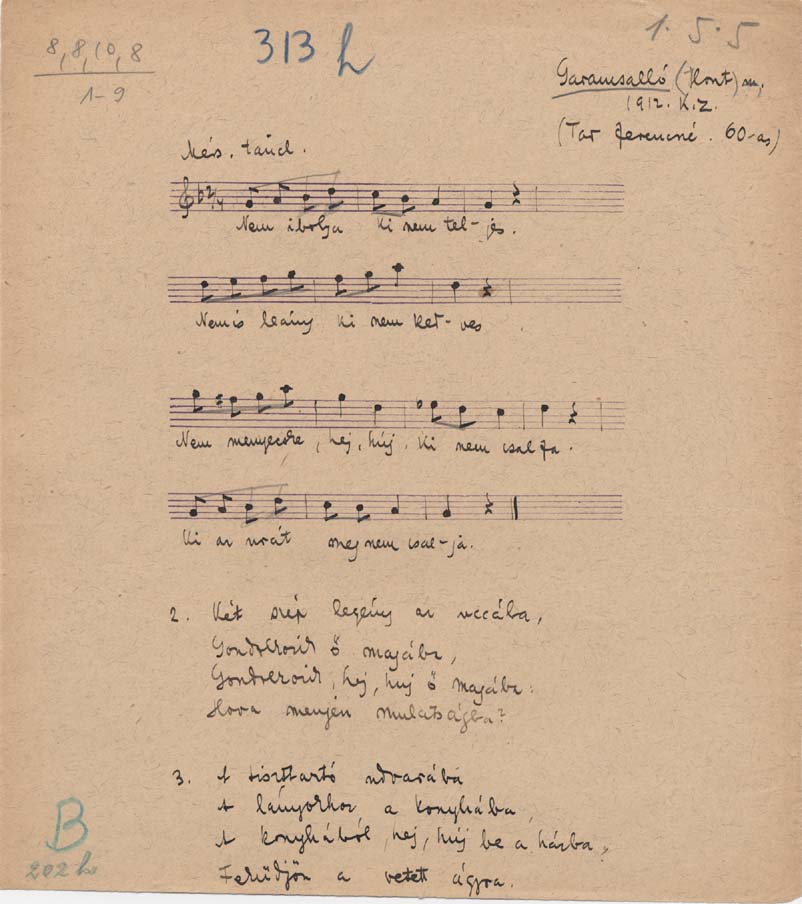 8, 8, 10, 8
1-9
313 h
1. 5. 5
Garamsalló (Hont) m.
1912. K.Z.
(Tar Ferencné. 60-as)
2/4
Nem ibolya ki nem tel-jes.
Nem is leány ki nem ked-ves
Nem menyecske, hej, húj. ki nem csalfa.
Ki az urát meg nem csal-ja.
2. Két szép legény az uccába,
Gondolkozik ő magába,
Gondolkozik, hej, huj ő magába:
Hova menjen mulatságba?
3. A tiszttartó udvarába
A lányokhoz a konyhába,
A konyhából, hej, húj be a házba,
Feküdjön a vetett ágyra.
B
202 h